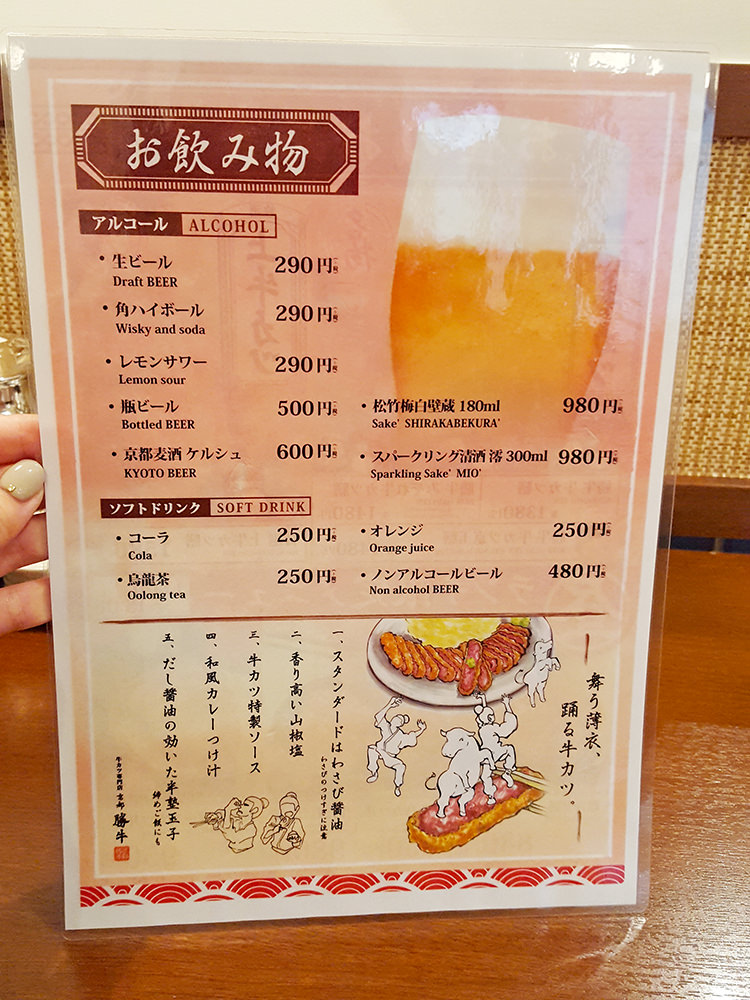 お飲み物
アルコール ALCOHOL
・生ビール 290円
Draft BEER
・角ハイボール 290円
Wisky and soda
・レモンサワー 290円
Lemon sour
・瓶ビール 500円
Bottled BEER
・京都麦酒 ケルシュ 600円
KYOTO BEER
・松竹梅白壁蔵 180ml 980円
Sake' SHIRAKABEKURA'
・スパークリング清酒 澪 300ml 980円
Sparkling Sake' MIO'
ソフトドリンク SOFT DRINK
・コーラ 250円
Cola
・烏龍茶 250円
Oolong tea
・オレンジ 250円
Orange juice
・ノンアルコールビール 480円
Non alcohol BEER
舞う薄衣、
踊る牛カツ。
一、スタンダードはわさび醤油
わさびのつけすぎに注意
二、香り高い山椒塩
三、牛カツ特製ソース
四、和風カレーつけ汁
五、だし醤油の効いた半塾玉子
締めご飯にも
牛カツ専門店 京都 勝牛